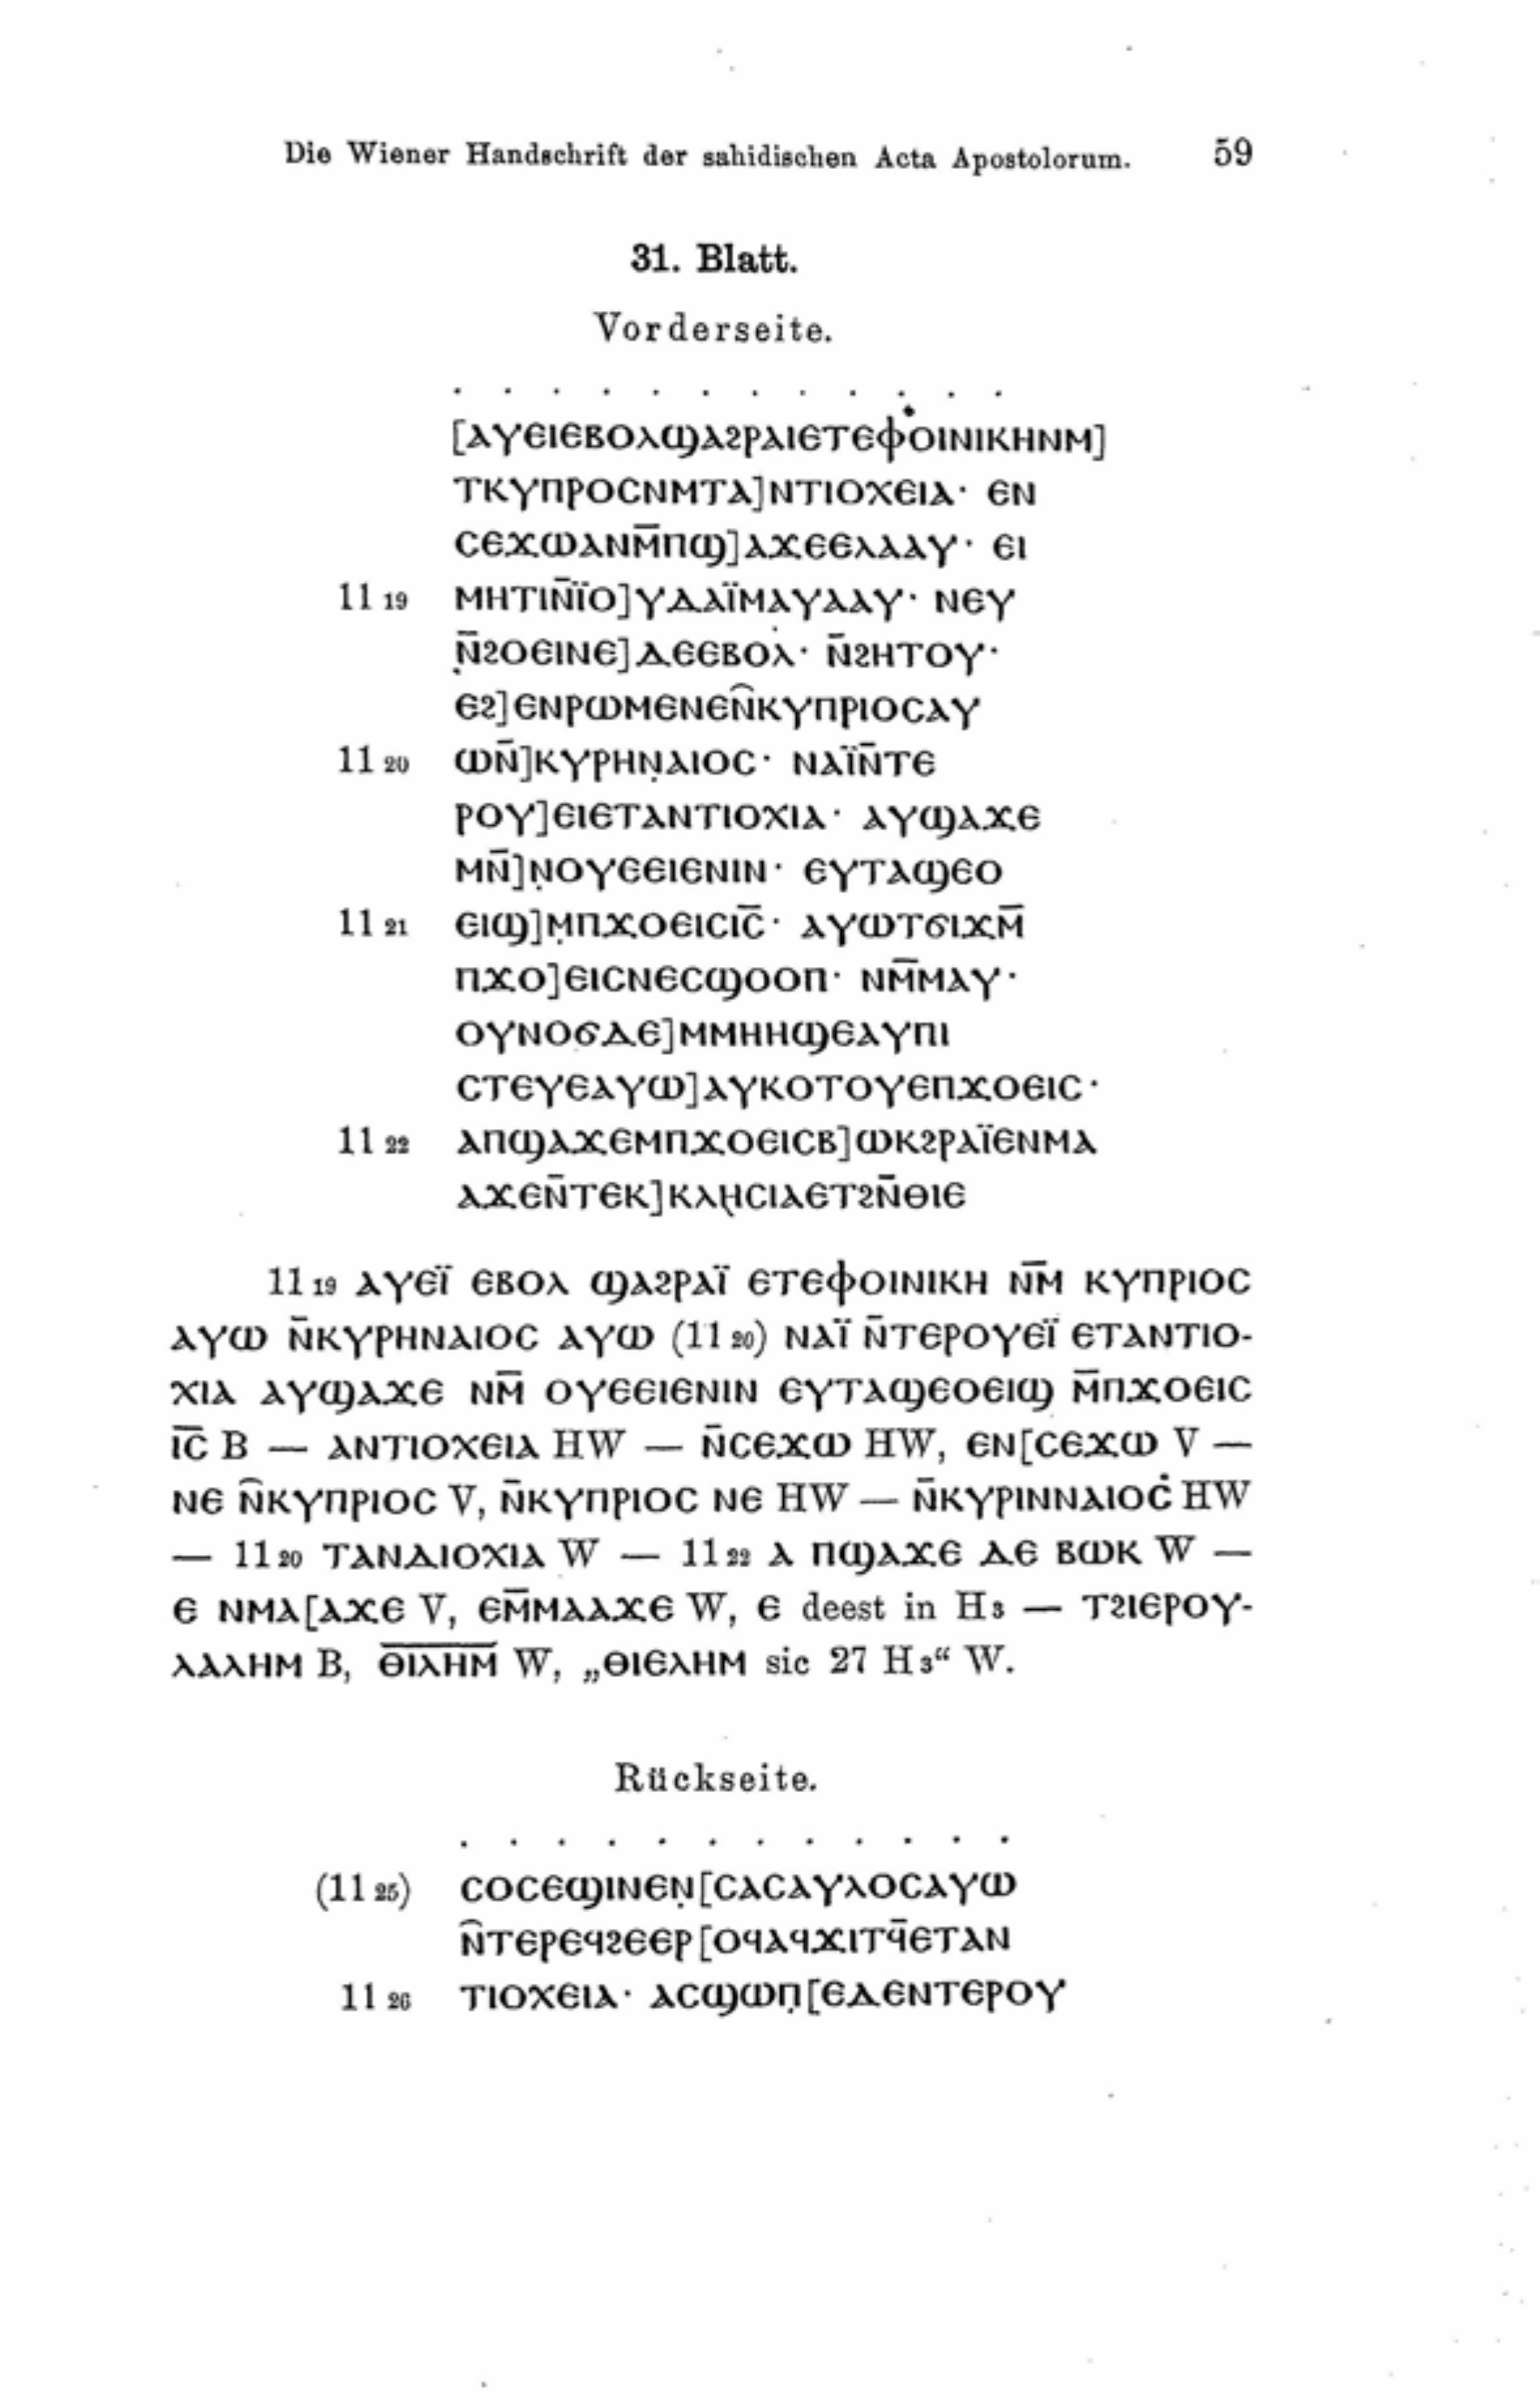 Die Wiener Handschrift der sahidischen Acta Apostolorum. 59
31. Blatt.
Vorderseite.
. . . . . . . . . . . .
[ⲁⲩⲉⲓⲉⲃⲟⲗϣⲁϩⲣⲁⲓⲉⲧⲉⲫⲟⲓⲛⲓⲕⲏⲛⲙ]
ⲧⲕⲩⲡⲣⲟⲥⲛⲙⲧⲁ]ⲛⲧⲓⲟⲭⲉⲓⲁ· ⲉⲛ
ⲥⲉϫⲱⲁⲛⲙ̄ⲡϣ]ⲁϫⲉⲉⲗⲁⲁⲩ· ⲉⲓ
11 19 ⲙⲏⲧⲓⲛ̄ⲓ̈ⲟ]ⲩⲇⲁⲓ̈ⲙⲁⲩⲁⲁⲩ· ⲛⲉⲩ
ⲛ̣̄ϩⲟⲉⲓⲛⲉ]ⲇⲉⲉⲃⲟⲗ· ⲛ̄ϩⲏⲧⲟⲩ·
ⲉϩ]ⲉⲛⲣⲱⲙⲉⲛⲉⲛ̑ⲕⲩⲡⲣⲓⲟⲥⲁⲩ
11 20 ⲱⲛ̄]ⲕⲩⲣⲏⲛ̣ⲁⲓⲟⲥ· ⲛⲁⲓ̈ⲛ̄ⲧⲉ
ⲣⲟⲩ]ⲉⲓⲉⲧⲁⲛⲧⲓⲟⲭⲓⲁ· ⲁⲩϣⲁϫⲉ
ⲙⲛ̄]ⲛ̣ⲟⲩⲉⲉⲓⲉⲛⲓⲛ· ⲉⲩⲧⲁϣⲉⲟ
11 21 ⲉⲓϣ]ⲙ̣ⲡϫⲟⲉⲓⲥⲓⲥ̄· ⲁⲩⲱⲧϭⲓϫⲙ̄
ⲡϫⲟ]ⲉⲓⲥⲛⲉⲥϣⲟⲟⲡ· ⲛⲙ̄ⲙⲁⲩ·
ⲟⲩⲛⲟϭⲇⲉ]ⲙⲙⲏⲏϣⲉⲁⲩⲡⲓ
ⲥⲧⲉⲩⲉⲁⲩⲱ]ⲁⲩⲕⲟⲧⲟⲩⲉⲡϫⲟⲉⲓⲥ·
11 22 ⲁⲡϣⲁϫⲉⲙⲡϫⲟⲉⲓⲥⲃ]ⲱⲕϩⲣⲁⲓ̈ⲉⲛⲙⲁ
ⲁϫⲉⲛ̄ⲧⲉⲕ]ⲕⲗⲏⲥⲓⲁⲉⲧϩⲛ̄ⲑⲓⲉ
11 19 ⲁⲩⲉⲓ̈ ⲉⲃⲟⲗ ϣⲁϩⲣⲁⲓ̈ ⲉⲧⲉⲫⲟⲓⲛⲓⲕⲏ ⲛⲙ̄ ⲕⲩⲡⲣⲓⲟⲥ
ⲁⲩⲱ ⲛ̄ⲕⲩⲣⲏⲛⲁⲓⲟⲥ ⲁⲩⲱ (11 20) ⲛⲁⲓ̈ ⲛ̄ⲧⲉⲣⲟⲩⲉⲓ̈ ⲉⲧⲁⲛⲧⲓⲟ-
ⲭⲓⲁ ⲁⲩϣⲁϫⲉ ⲛⲙ̄ ⲟⲩⲉⲉⲓⲉⲛⲓⲛ ⲉⲩⲧⲁϣⲉⲟⲉⲓϣ ⲙ̄ⲡϫⲟⲉⲓⲥ
ⲓ̄ⲥ̄ B — ⲁⲛⲧⲓⲟⲭⲉⲓⲁ HW — ⲛ̄ⲥⲉϫⲱ HW, ⲉⲛ[ⲥⲉϫⲱ V —
ⲛⲉ ⲛ̑ⲕⲩⲡⲣⲓⲟⲥ V, ⲛ̄ⲕⲩⲡⲣⲓⲟⲥ ⲛⲉ HW — ⲛ̄ⲕⲩⲣⲓⲛⲛⲁⲓⲟⲥ̇ HW
— 11 20 ⲧⲁⲛⲇⲓⲟⲭⲓⲁ W — 11 22 ⲁ ⲡϣⲁϫⲉ ⲇⲉ ⲃⲱⲕ W —
ⲉ ⲛⲙⲁ[ⲁϫⲉ V, ⲉⲙ̄ⲙⲁⲁϫⲉ W, ⲉ deest in H3 — ⲧϩⲓⲉⲣⲟⲩ-
ⲁⲗⲗⲏⲙ B, ⲑ̅ⲓ̅ⲗ̅ⲏ̅ⲙ̅ W, „ⲑⲓⲉⲗⲏⲙ sic 27 H3“ W.
Rückseite.
. . . . . . . . . . . .
(11 25) ⲥⲟⲥⲉϣⲓⲛⲉⲛ̣[ⲥⲁⲥⲁⲩⲗⲟⲥⲁⲩⲱ
ⲛ̑ⲧⲉⲣⲉϥϩⲉⲉⲣ[ⲟϥⲁϥϫⲓⲧϥ̄ⲉⲧⲁⲛ
11 26 ⲧⲓⲟⲭⲉⲓⲁ· ⲁⲥϣⲱⲡ̣[ⲉⲇⲉⲛⲧⲉⲣⲟⲩ